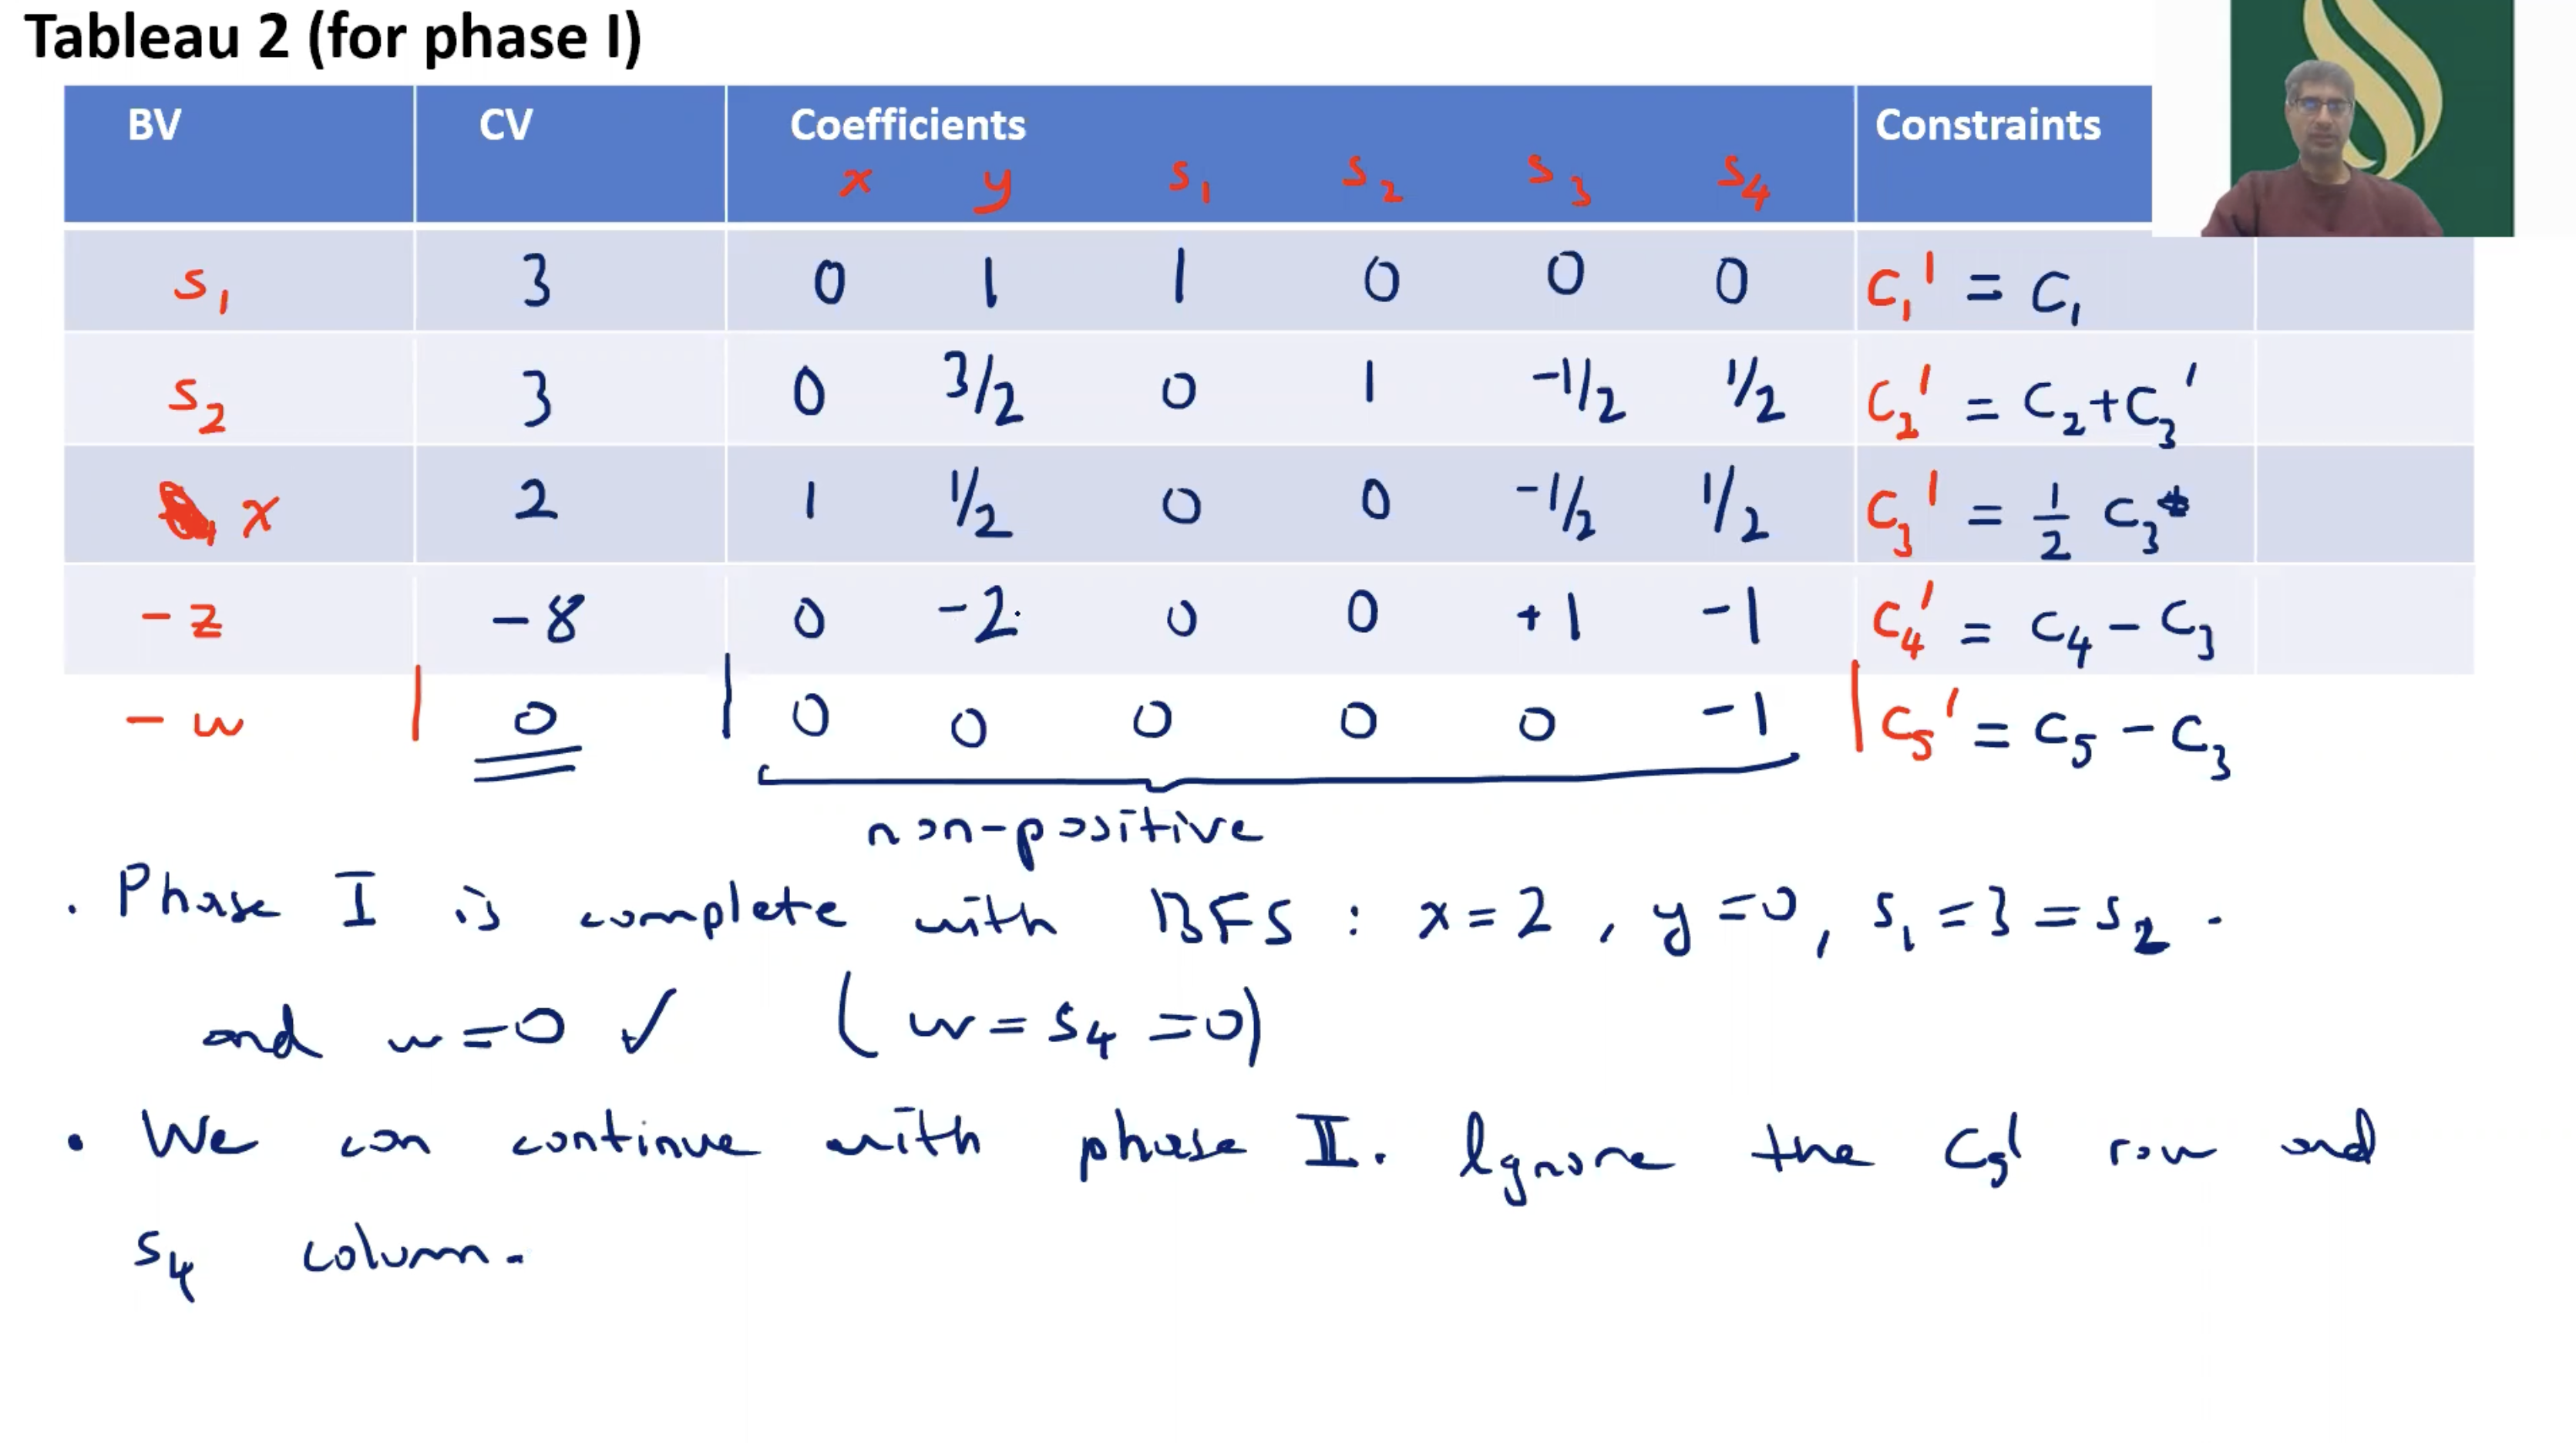 Tableau 2 (for phase I)
BV CV Coefficients Constraints
x y s₁ s₂ s₃ s₄
s₁ 3 0 1 1 0 0 0 C₁' = C₁
s₂ 3 0 3/2 0 1 -1/2 1/2 C₂' = C₂+C₃'
x 2 1 1/2 0 0 -1/2 1/2 C₃' = 1/2 C₃
-z -8 0 -2 0 0 +1 -1 C₄' = C₄ - C₃
-w 0 0 0 0 0 0 -1 C₅' = C₅ - C₃
non-positive
. Phase I is complete with BFS : x=2 , y=0, s₁=3=s₂ .
and w=0 ✓ (w=s₄=0)
• We can continue with phase II. Ignore the C₅' row and
s₄ column.